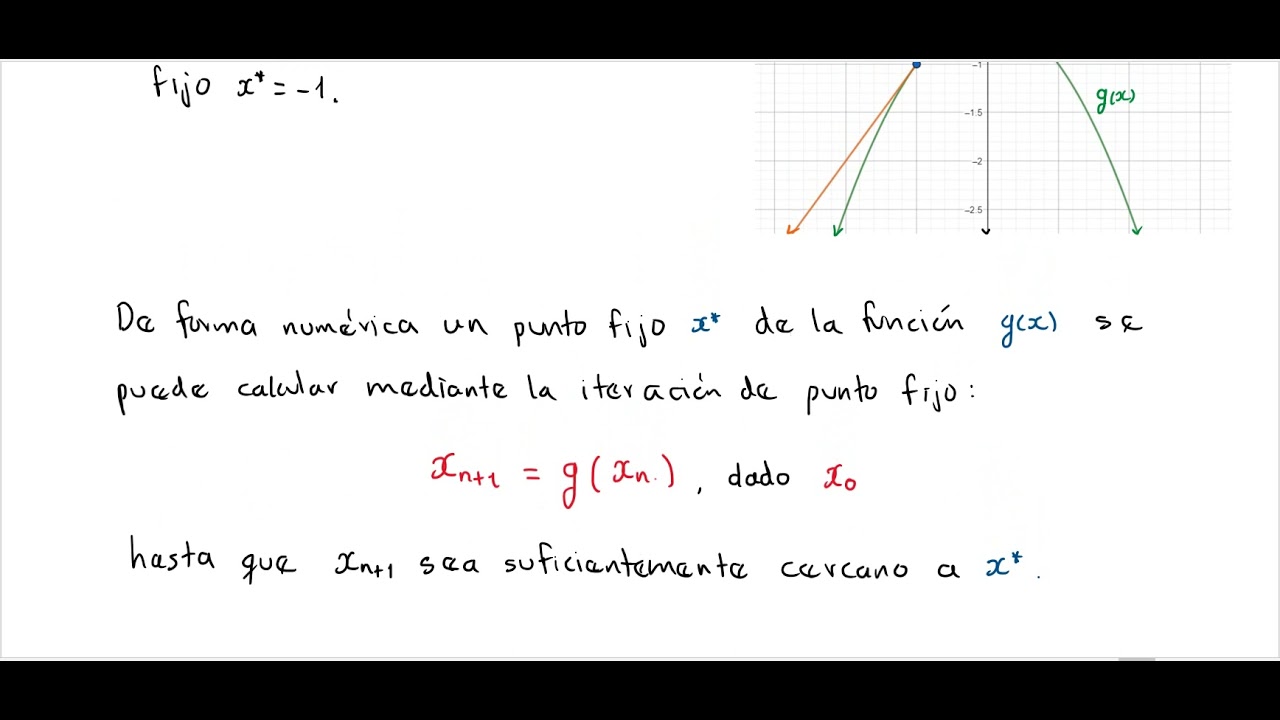 fijo x* = -1.
-1
g(x)
-1.5
-2
-2.5
De forma numérica un punto fijo x* de la función g(x) se
puede calcular mediante la iteración de punto fijo:
xₙ₊₁ = g(xₙ.), dado x₀
hasta que xₙ₊₁ sea suficientemente cercano a x*.